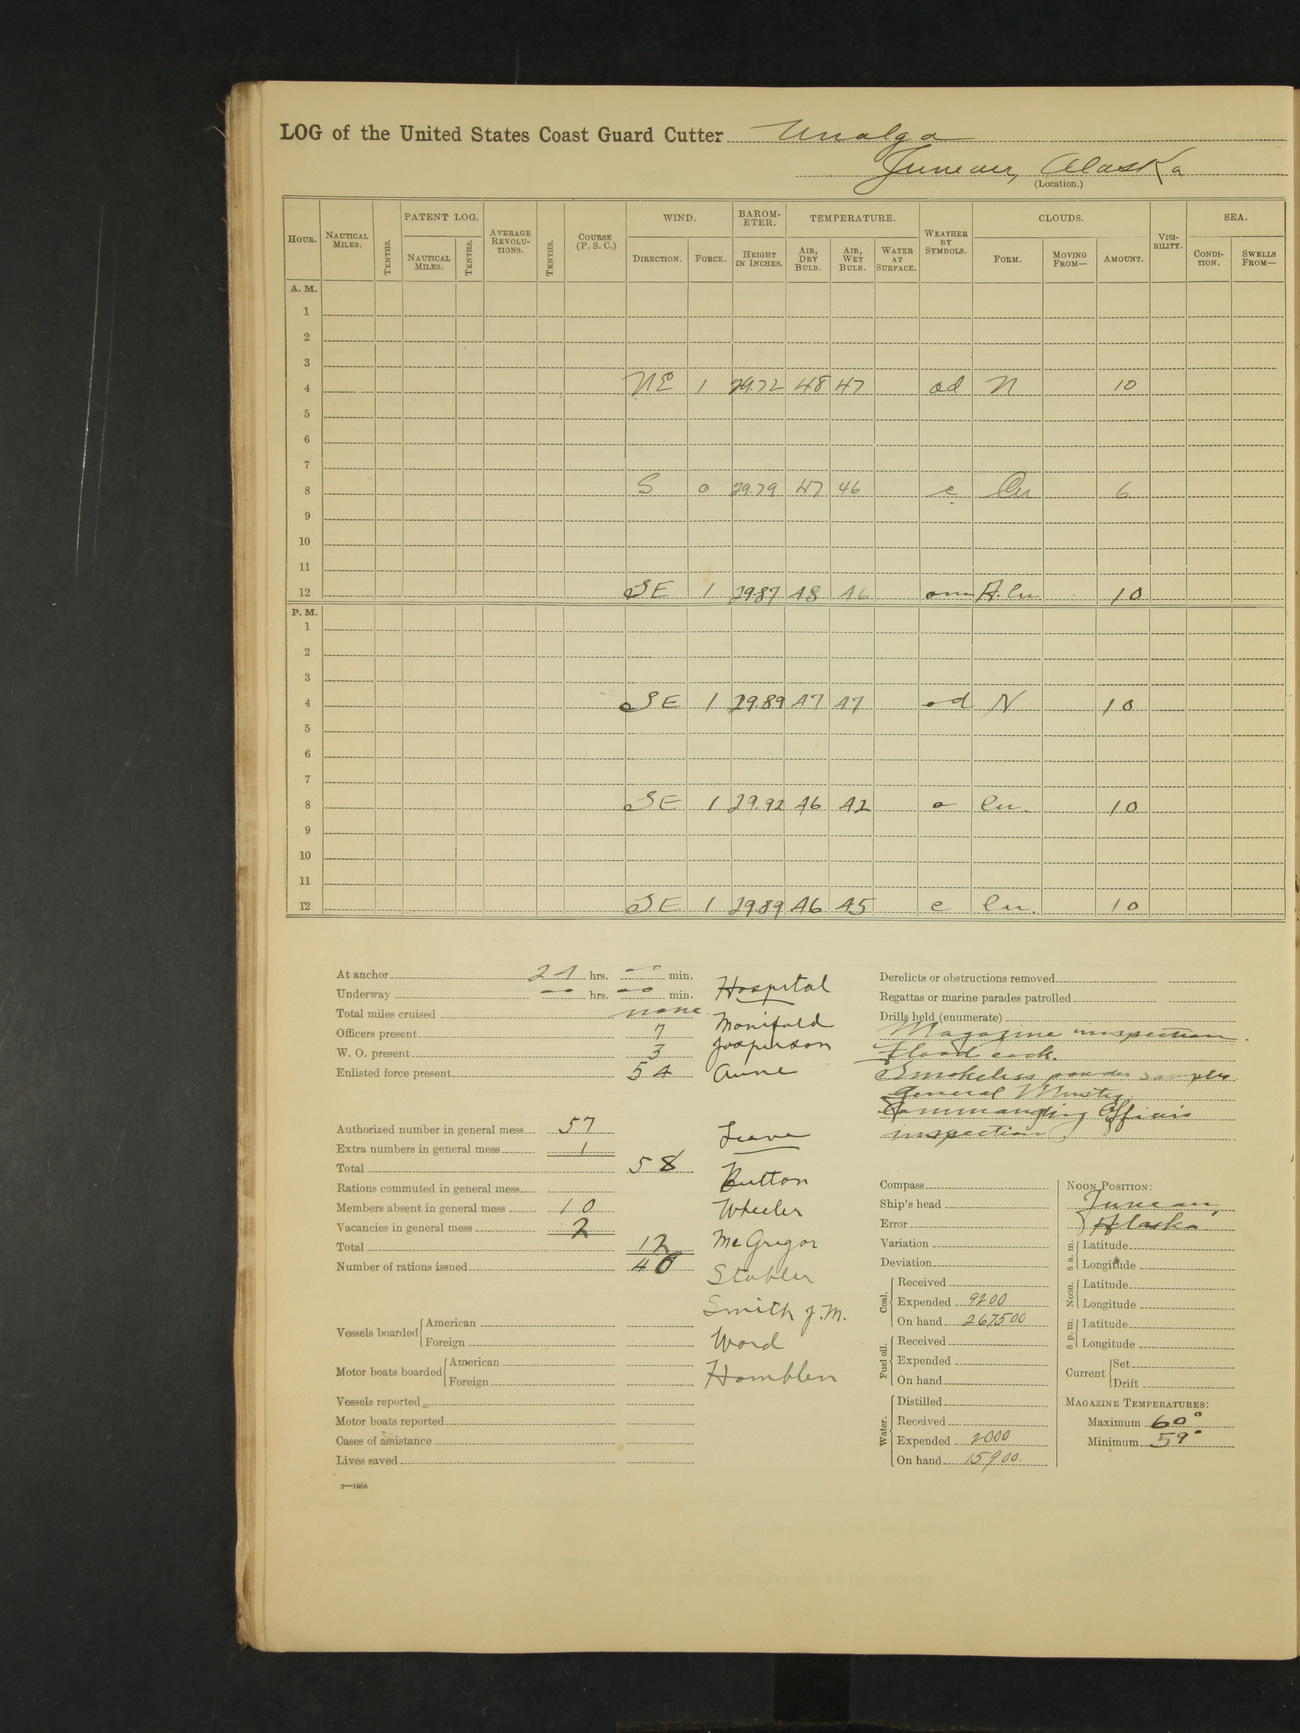 LOG of the United States Coast Guard Cutter Unalga
Juneau, Alaska
(Location.)
HOUR. NAUTICAL MILES. TENTHS. PATENT LOG. NAUTICAL MILES. TENTHS. AVERAGE REVOLUTIONS. TENTHS. COURSE (P. S. C.) WIND. DIRECTION. FORCE. BAROMETER. HEIGHT IN INCHES. TEMPERATURE. AIR, DRY BULB. AIR, WET BULB. WATER AT SURFACE. WEATHER BY SYMBOLS. CLOUDS. FORM. MOVING FROM— AMOUNT. VISIBILITY. SEA. CONDITION. SWELLS FROM—
A. M.
1
2
3
4 NE 1 29.72 48 47 od N 10
5
6
7
8 S 0 29.79 47 46 c Cu 6
9
10
11
12 SE 1 29.87 48 46 om A.Cu. 10
P. M.
1
2
3
4 SE 1 29.89 47 47 od N 10
5
6
7
8 SE 1 29.92 46 42 o Cu. 10
9
10
11
12 SE 1 29.89 46 45 c Cu. 10
At anchor 24 hrs. — min.
Underway — hrs. — min.
Total miles cruised none
Officers present 7
W. O. present 3
Enlisted force present 54
Authorized number in general mess 57
Extra numbers in general mess 1
Total 58
Rations commuted in general mess
Members absent in general mess 10
Vacancies in general mess 2
Total 12
Number of rations issued 46
Vessels boarded American
Foreign
Motor boats boarded American
Foreign
Vessels reported
Motor boats reported
Cases of assistance
Lives saved
2—1564
Hospital
Manifold
Josperson
Aune
Leave
Button
Wheeler
McGregor
Stabler
Smith J.M.
Ward
Hamblen
Derelicts or obstructions removed
Regattas or marine parades patrolled
Drills held (enumerate)
Magazine inspection.
Flood cock.
Smokeless powder samples
General Muster
Commanding Officers
inspection.
Compass
Ship's head
Error
Variation
Deviation
Coal. Received
Expended 9200
On hand 267500
Fuel oil. Received
Expended
On hand
Water. Distilled
Received
Expended 2000
On hand 15900
NOON POSITION:
Juneau,
Alaska
8 a. m. Latitude
Longitude
Noon. Latitude
Longitude
8 p. m. Latitude
Longitude
Current Set
Drift
MAGAZINE TEMPERATURES:
Maximum 60°
Minimum 59°